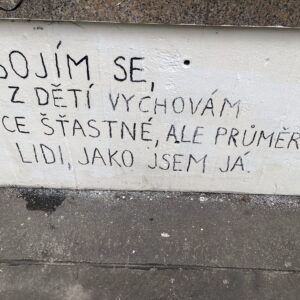 BOJÍM SE,
Z DĚTÍ VYCHOVÁM
CE ŠŤASTNÉ, ALE PRŮMĚR
LIDI, JAKO JSEM JÁ.